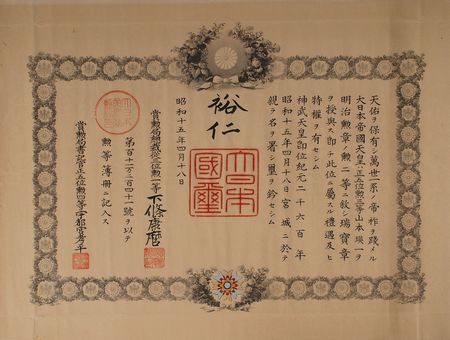 天佑ヲ保有シ萬世一系ノ帝祚ヲ踐メル
大日本帝國天皇ハ正五位勲三等山本瑛一ヲ
明治勲章ノ勲二等ニ敘シ瑞寶章
ヲ授與ス即チ此位ニ屬スル禮遇及ヒ
特權ヲ有セシム
神武天皇即位紀元二千六百年
昭和十五年四月十八日宮城ニ於テ
親ラ名ヲ署シ璽ヲ鈐セシム
裕仁
大日本
國璽
昭和十五年四月十八日
賞勲局總裁從三位勲一等下條康麿
勲等簿冊ニ記入ス
賞勲局書記官正五位勲四等宇都宮孝平